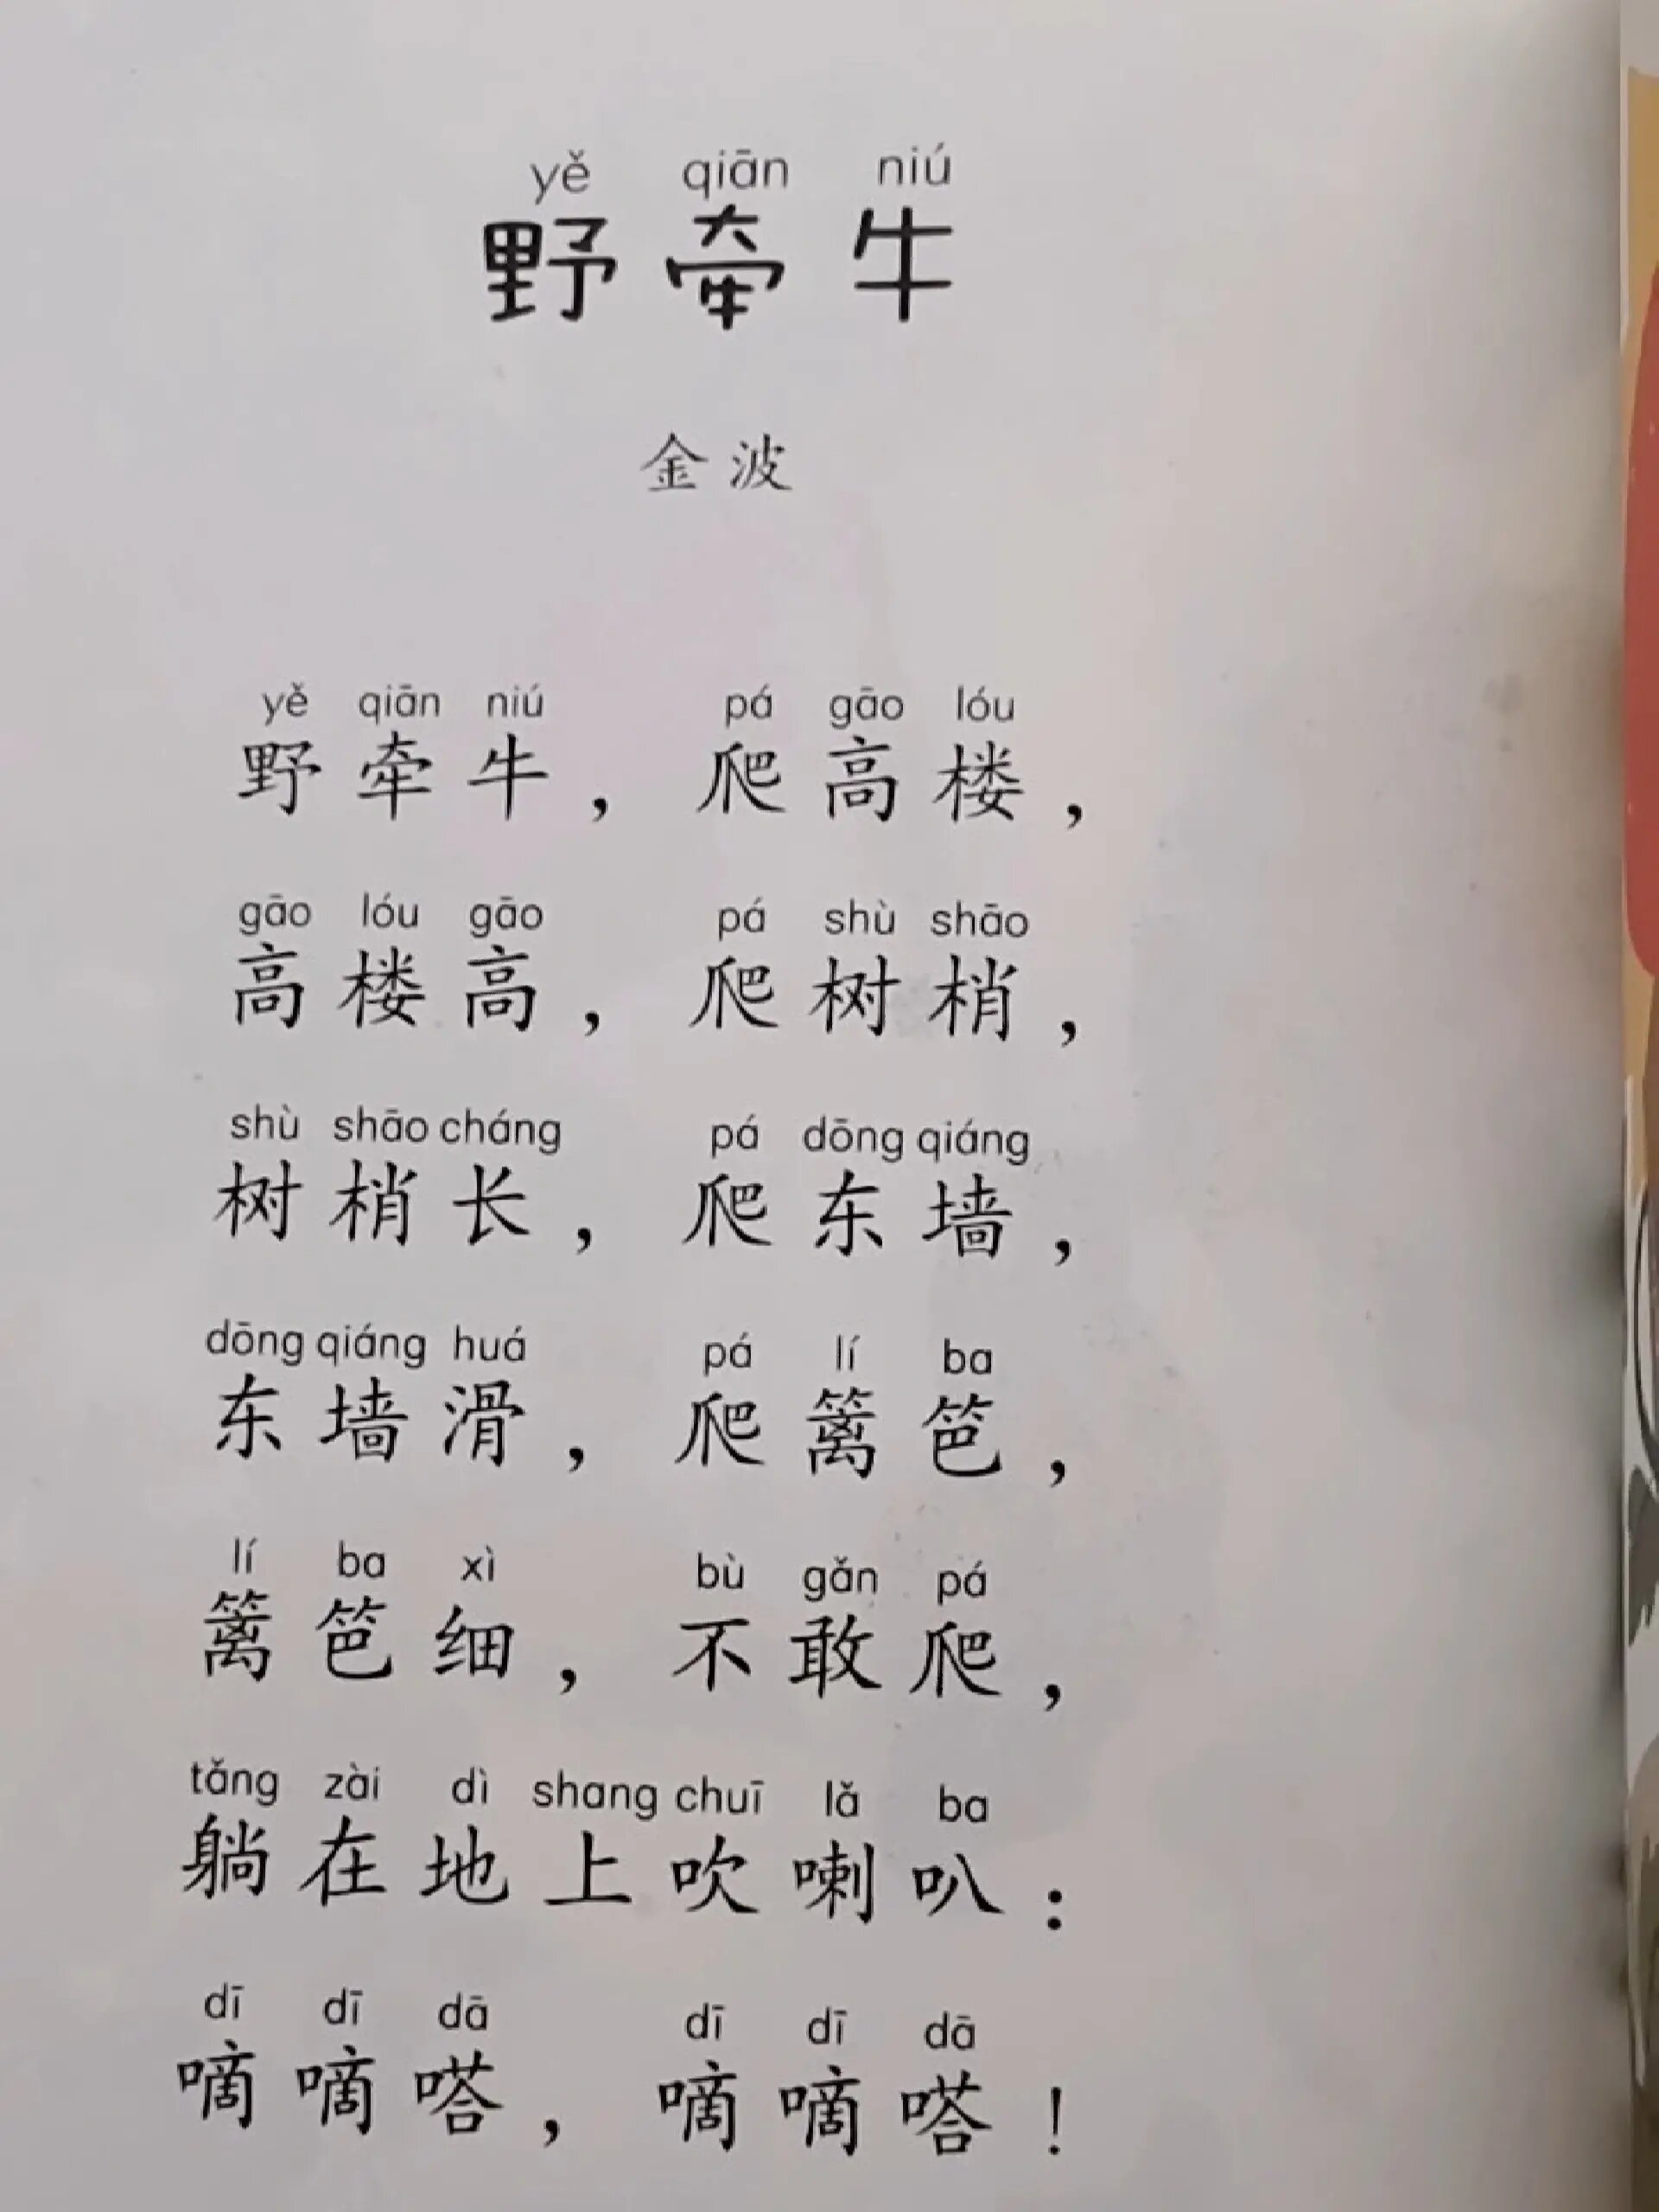 yě qiān niú
野牵牛
金波
yě qiān niú pá gāo lóu
野牵牛，爬高楼，
gāo lóu gāo pá shù shāo
高楼高，爬树梢，
shù shāo cháng pá dōng qiáng
树梢长，爬东墙，
dōng qiáng huá pá lí ba
东墙滑，爬篱笆，
lí ba xì bù gǎn pá
篱笆细，不敢爬，
tǎng zài dì shang chuī lǎ ba
躺在地上吹喇叭：
dī dī dā dī dī dā
嘀嘀嗒，嘀嘀嗒！